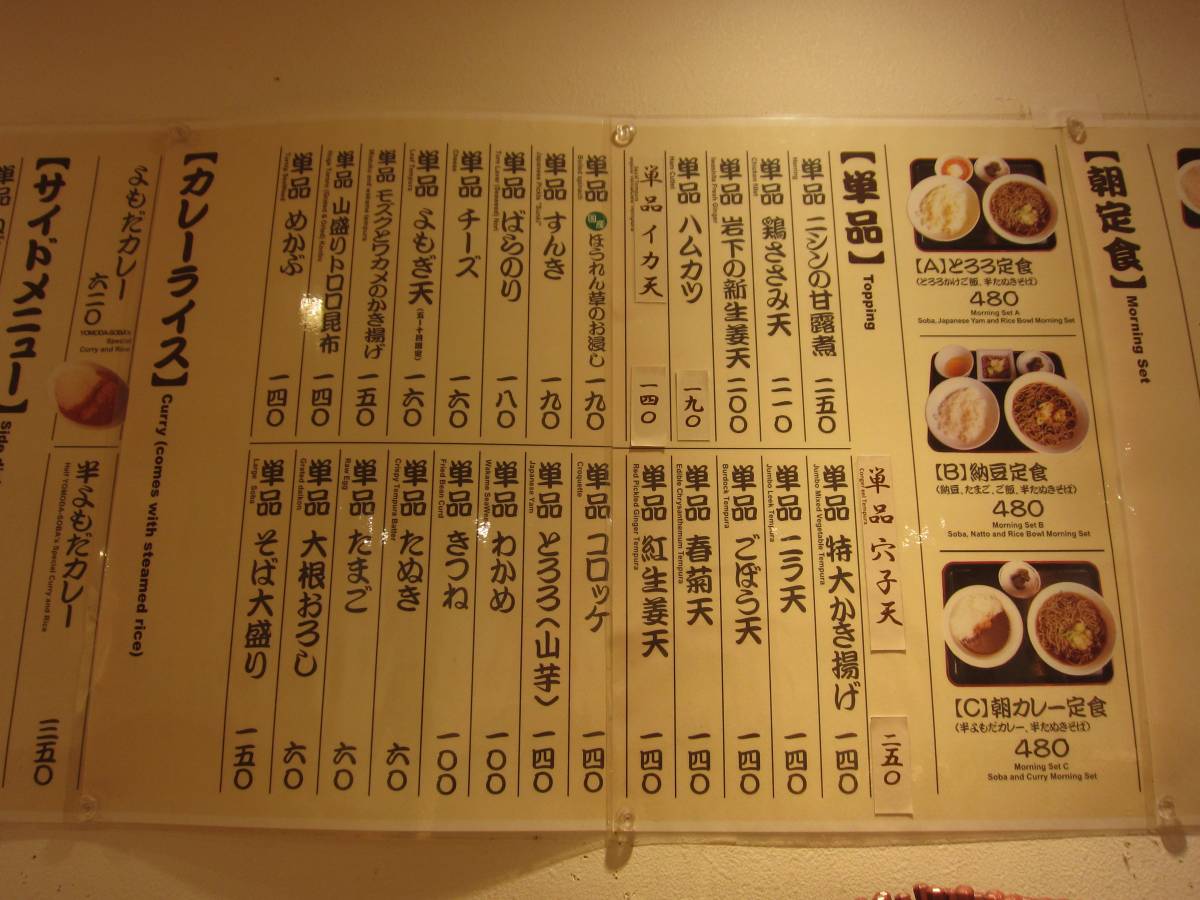 【朝定食】
Morning Set
【A】とろろ定食
(とろろかけご飯、半たぬきそば)
480
Morning Set A
Soba, Japanese Yam and Rice Bowl Morning Set
【B】納豆定食
(納豆、たまご、ご飯、半たぬきそば)
480
Morning Set B
Soba, Natto and Rice Bowl Morning Set
【C】朝カレー定食
(半よもだカレー、半たぬきそば)
480
Morning Set C
Soba and Curry Morning Set
【単品】
Topping
単品 ニシンの甘露煮 二五〇
Herring
単品 鶏ささみ天 二一〇
単品 岩下の新生姜天 二〇〇
単品 ハムカツ 一九〇
単品イカ天 一四〇
単品 国産 ほうれん草のお浸し 一九〇
Boiled spinach
単品 すんき 一九〇
単品 ばらのり 一八〇
単品 チーズ 一六〇
Cheese
単品 よもぎ天 一六〇
Leaf Tempura
単品 モズクとワカメのかき揚げ 一五〇
単品 山盛りトロロ昆布 一四〇
単品 めかぶ 一四〇
単品穴子天 二五〇
Conger eel Tempura
単品 特大かき揚げ 一四〇
Jumbo Mixed Vegetable Tempura
単品 ニラ天 一四〇
Jumbo Leek Tempura
単品 ごぼう天 一四〇
Burdock Tempura
単品 春菊天 一四〇
Edible Chrysanthemum Tempura
単品 紅生姜天 一四〇
Red Pickled Ginger Tempura
単品 コロッケ 一四〇
Croquette
単品 とろろ〈山芋〉 一四〇
Japanese Yam
単品 わかめ 一〇〇
Wakame SeaWeed
単品 きつね 一〇〇
Fried Bean Curd
単品 たぬき 六〇
Crispy Tempura Batter
単品 たまご 六〇
Raw Egg
単品 大根おろし 六〇
Grated daikon
単品 そば大盛り 一五〇
Large Soba
【カレーライス】
Curry (comes with steamed rice)
よもだカレー 六二〇
YOMODA-SOBA's
Special
Curry and Rice
半よもだカレー 三五〇
Half YOMODA-SOBA's Special Curry and Rice
【サイドメニュー】
単品